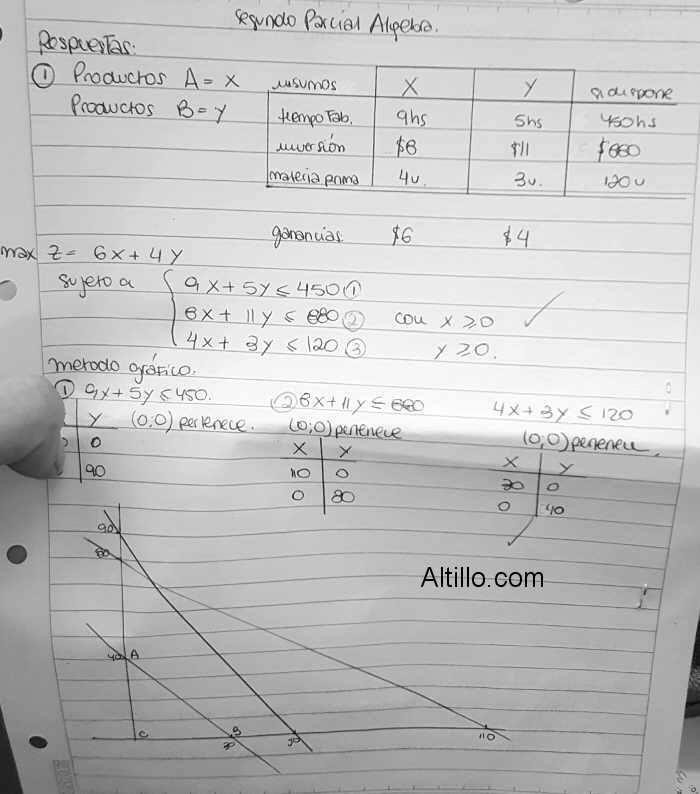 Segundo Parcial Algebra.
Respuestas:
① Productos A = X insumos X Y se dispone
Productos B = Y tiempo Fab. 9hs 5hs 450hs
inversión $8 $11 $880
materia prima 4u. 3u. 120u
ganancias $6 $4
max Z = 6x + 4y
sujeto a 9x + 5y ≤ 450 ①
8x + 11y ≤ 880 ② con x ≥ 0
4x + 3y ≤ 120 ③ y ≥ 0.
metodo gráfico.
① 9x + 5y ≤ 450. ② 8x + 11y ≤ 880 4x + 3y ≤ 120
Y (0;0) pertenece. (0;0) pertenece (0;0) pertenece
0 X Y X Y
90 110 0 30 0
0 80 0 40
90
80
Altillo.com
40 A
C B
30 50 110